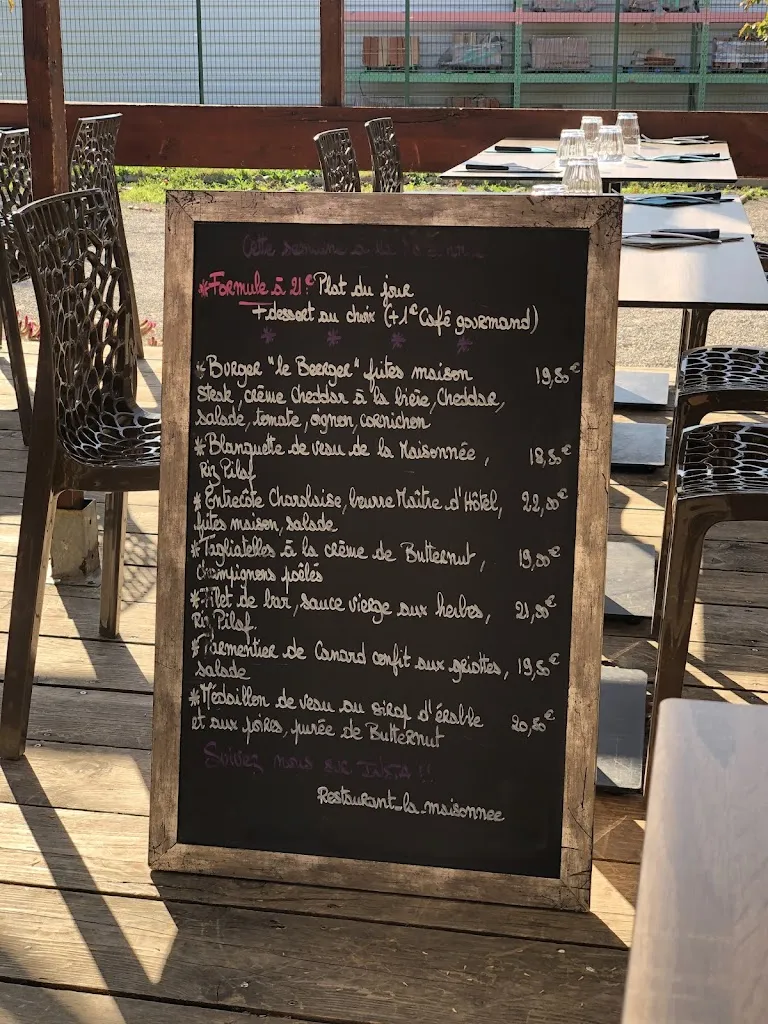 Cette semaine à la Maisonnée
*Formule à 21€ Plat du jour
+ dessert au choix (+1€ Café gourmand)
* * * *
*Burger "le Beerger" frites maison 19,80€
steak, crème Cheddar à la bière, Cheddar,
salade, tomate, oignon, cornichon
*Blanquette de veau de la Maisonnée, 18,80€
Riz Pilaf
*Entrecôte Charolaise, beurre Maître d'Hôtel, 22,00€
frites maison, salade
*Tagliatelles à la crème de Butternut, 19,00€
champignons poêlés
*Filet de bar, sauce vierge aux herbes, 21,00€
Riz Pilaf
*Parmentier de Canard confit aux griottes, 19,80€
salade
*Médaillon de veau au sirop d'érable 20,80€
et aux poires, purée de Butternut
Suivez nous sur INSTA !!
Restaurant_la_maisonnee